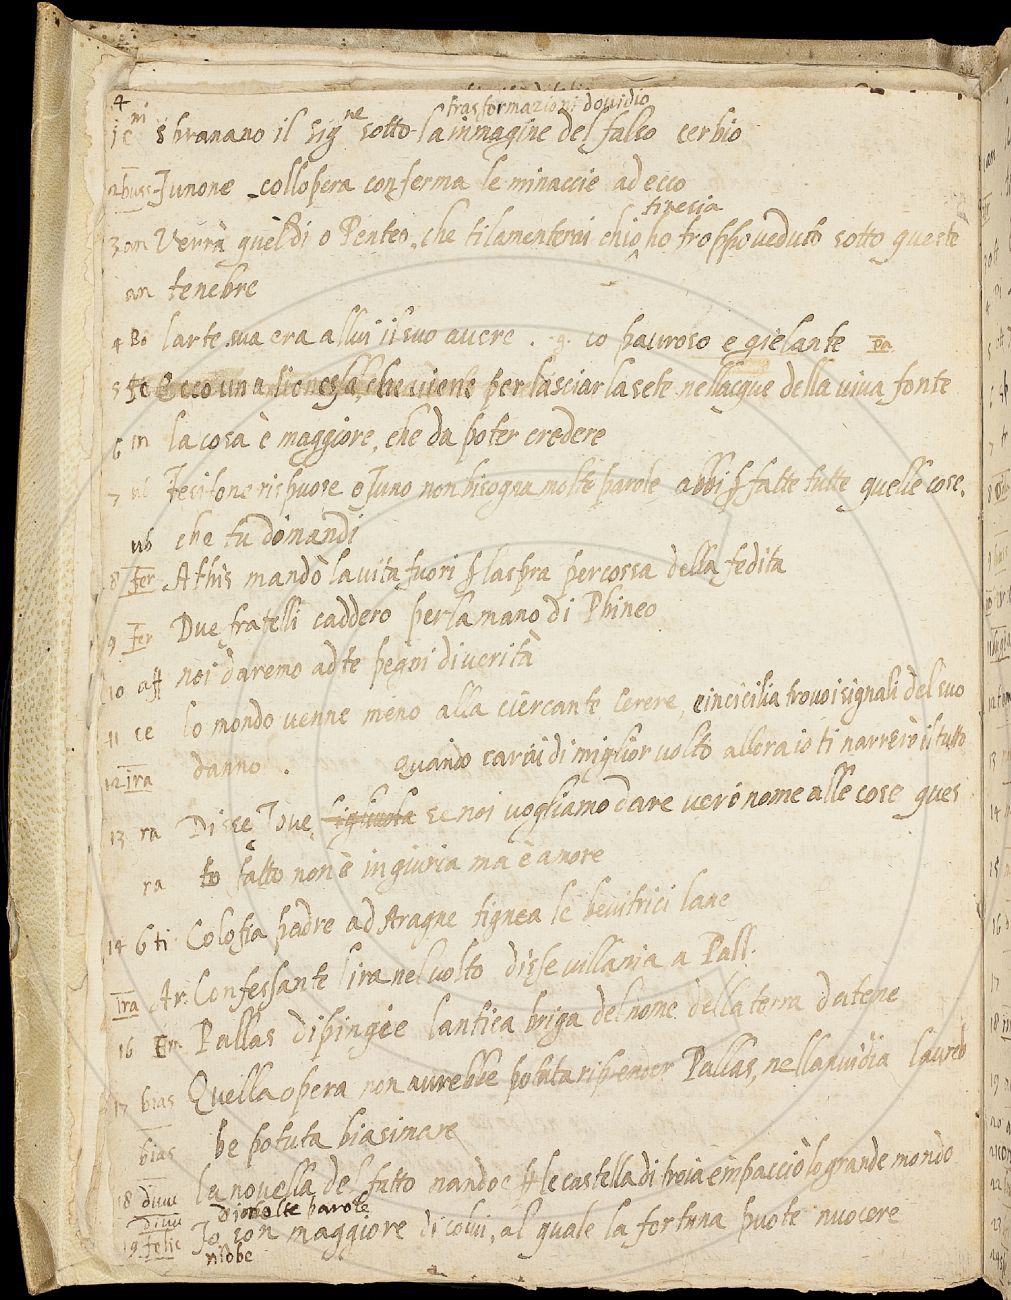 4
trasformazioni dovidio
1 sbranano il sig.ne sotto la immagine del falso cerbio
2 Junone collopera conferma le minaccie ad ecco
tiresia
3 am Verrà quel dì o Penteo, che ti lamenterai chio ho troppo veduto sotto queste
am tenebre
4 Bo larte sua era allui il suo avere . co pauroso e gielante pa
5 fe Ecco una lionessa, che viene per lasciar la sete nellacque della viva fonte
6 in la cosa è maggiore, che da poter credere
7 ni Tesifone rispuose o Juno non bisogna molte parole abbi fatte tutte quelle cose,
ub che tu domandi
8 fer Athis mandò la vita fuori laspra percossa della fedita
9 fer Due fratelli caddero per la mano di Phineo
10 aff noi daremo ad te pegni di verità
11 ce lo mondo venne meno alla ciercante Cerere, e in cicilia trovo i signali del suo
12 ira danno . Quando sarai di miglior volto allora io ti narrerò il tutto
13 ra Disse Jove, figliuola se noi vogliamo dare vero nome alle cose ques
ra to fatto non è ingiuria ma è amore
14 6 ti Colofia padre ad Aragne tignea le bevitrici lane
ira Ar. Confessante lira nel volto disse villania a Pall.
16 Em Pallas dipingie lantica briga del nome della terra datene
17 bias Quella opera non avrebbe potuta riprender Pallas, nella nuidia laureb
bias be potuta biasimare
18 divu la novella del fatto nandoe le castella di troia e impacciò lo grande mondo
divu di molte parole
19 felic Jo son maggiore di colui, al quale la fortuna puote nuocere
niobe